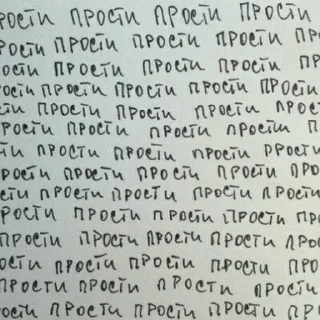 прости прости прости прости
прости прости прости прости
прости прости прости прости
прости прости прости прости
прости прости прости прости
прости прости прости прости
прости прости прости прости
прости прости прости прости прости
прости прости прости прости
прости прости прости прости
прости прости прости прости
прости прости прости прости
прости прости прости прости
прости прости прости прости